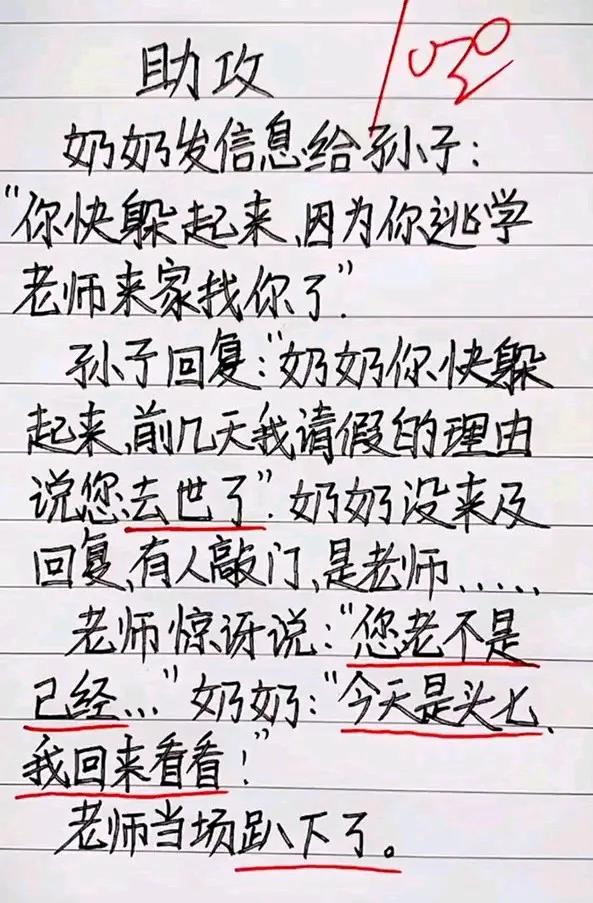 助攻
奶奶发信息给孙子：
“你快躲起来、因为你逃学
老师来家找你了”.
孙子回复：“奶奶你快躲
起来、前几天我请假的理由
说您去世了”. 奶奶没来及
回复、有人敲门、是老师.....
老师惊讶说：“您老不是
已经...”奶奶：“今天是头七、
我回来看看！”
老师当场趴下了。